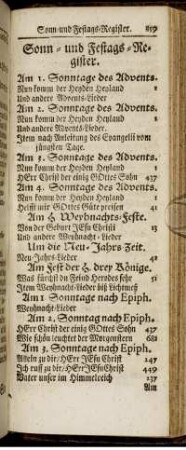 Sonn- und Festags-Register. 859
Sonn- und Festags-Re-
gister.
Am 1. Sonntage des Advents.
Nun komm der Heyden Heyland 1
Und andere Advents-Lieder
Am 2. Sonntage des Advents.
Nun komm der Heyden Heyland 1
Und andere Advents-Lieder.
Item nach Anleitung des Evangelii vom
jüngsten Tage.
Am 3. Sonntage des Advents.
Nun komm der Heyden Heyland 1
HErr Christ der einig GOttes Sohn 437
Am 4. Sonntage des Advents.
Nun komm der Heyden Heyland 1
Helfft mir GOttes Güte preisen 41
Am H. Weyhnachts-Feste.
Von der Geburt JEsu Christi 13
Und andere Weyhnacht-Lieder
Um die Neu-Jahrs Zeit.
Neu-Jahrs-Lieder 41
Am Fest der H. drey Könige.
Was fürchst du Feind Herodes sehr 51
Item Weyhnacht-Lieder biß Lichtmeß
Am 1 Sonntag nach Epiph.
Weyhnacht-Lieder
Am 2. Sonntag nach Epiph.
HErr Christ der einig GOttes Sohn 437
Wie schön leuchtet der Morgenstern 681
Am 3. Sonntage nach Epiph.
Allein zu dir/ HErr JEsu Christ 347
Ich ruff zu dir/ HErr JEsu Christ 449
Vater unser im Himmelreich 237
Am